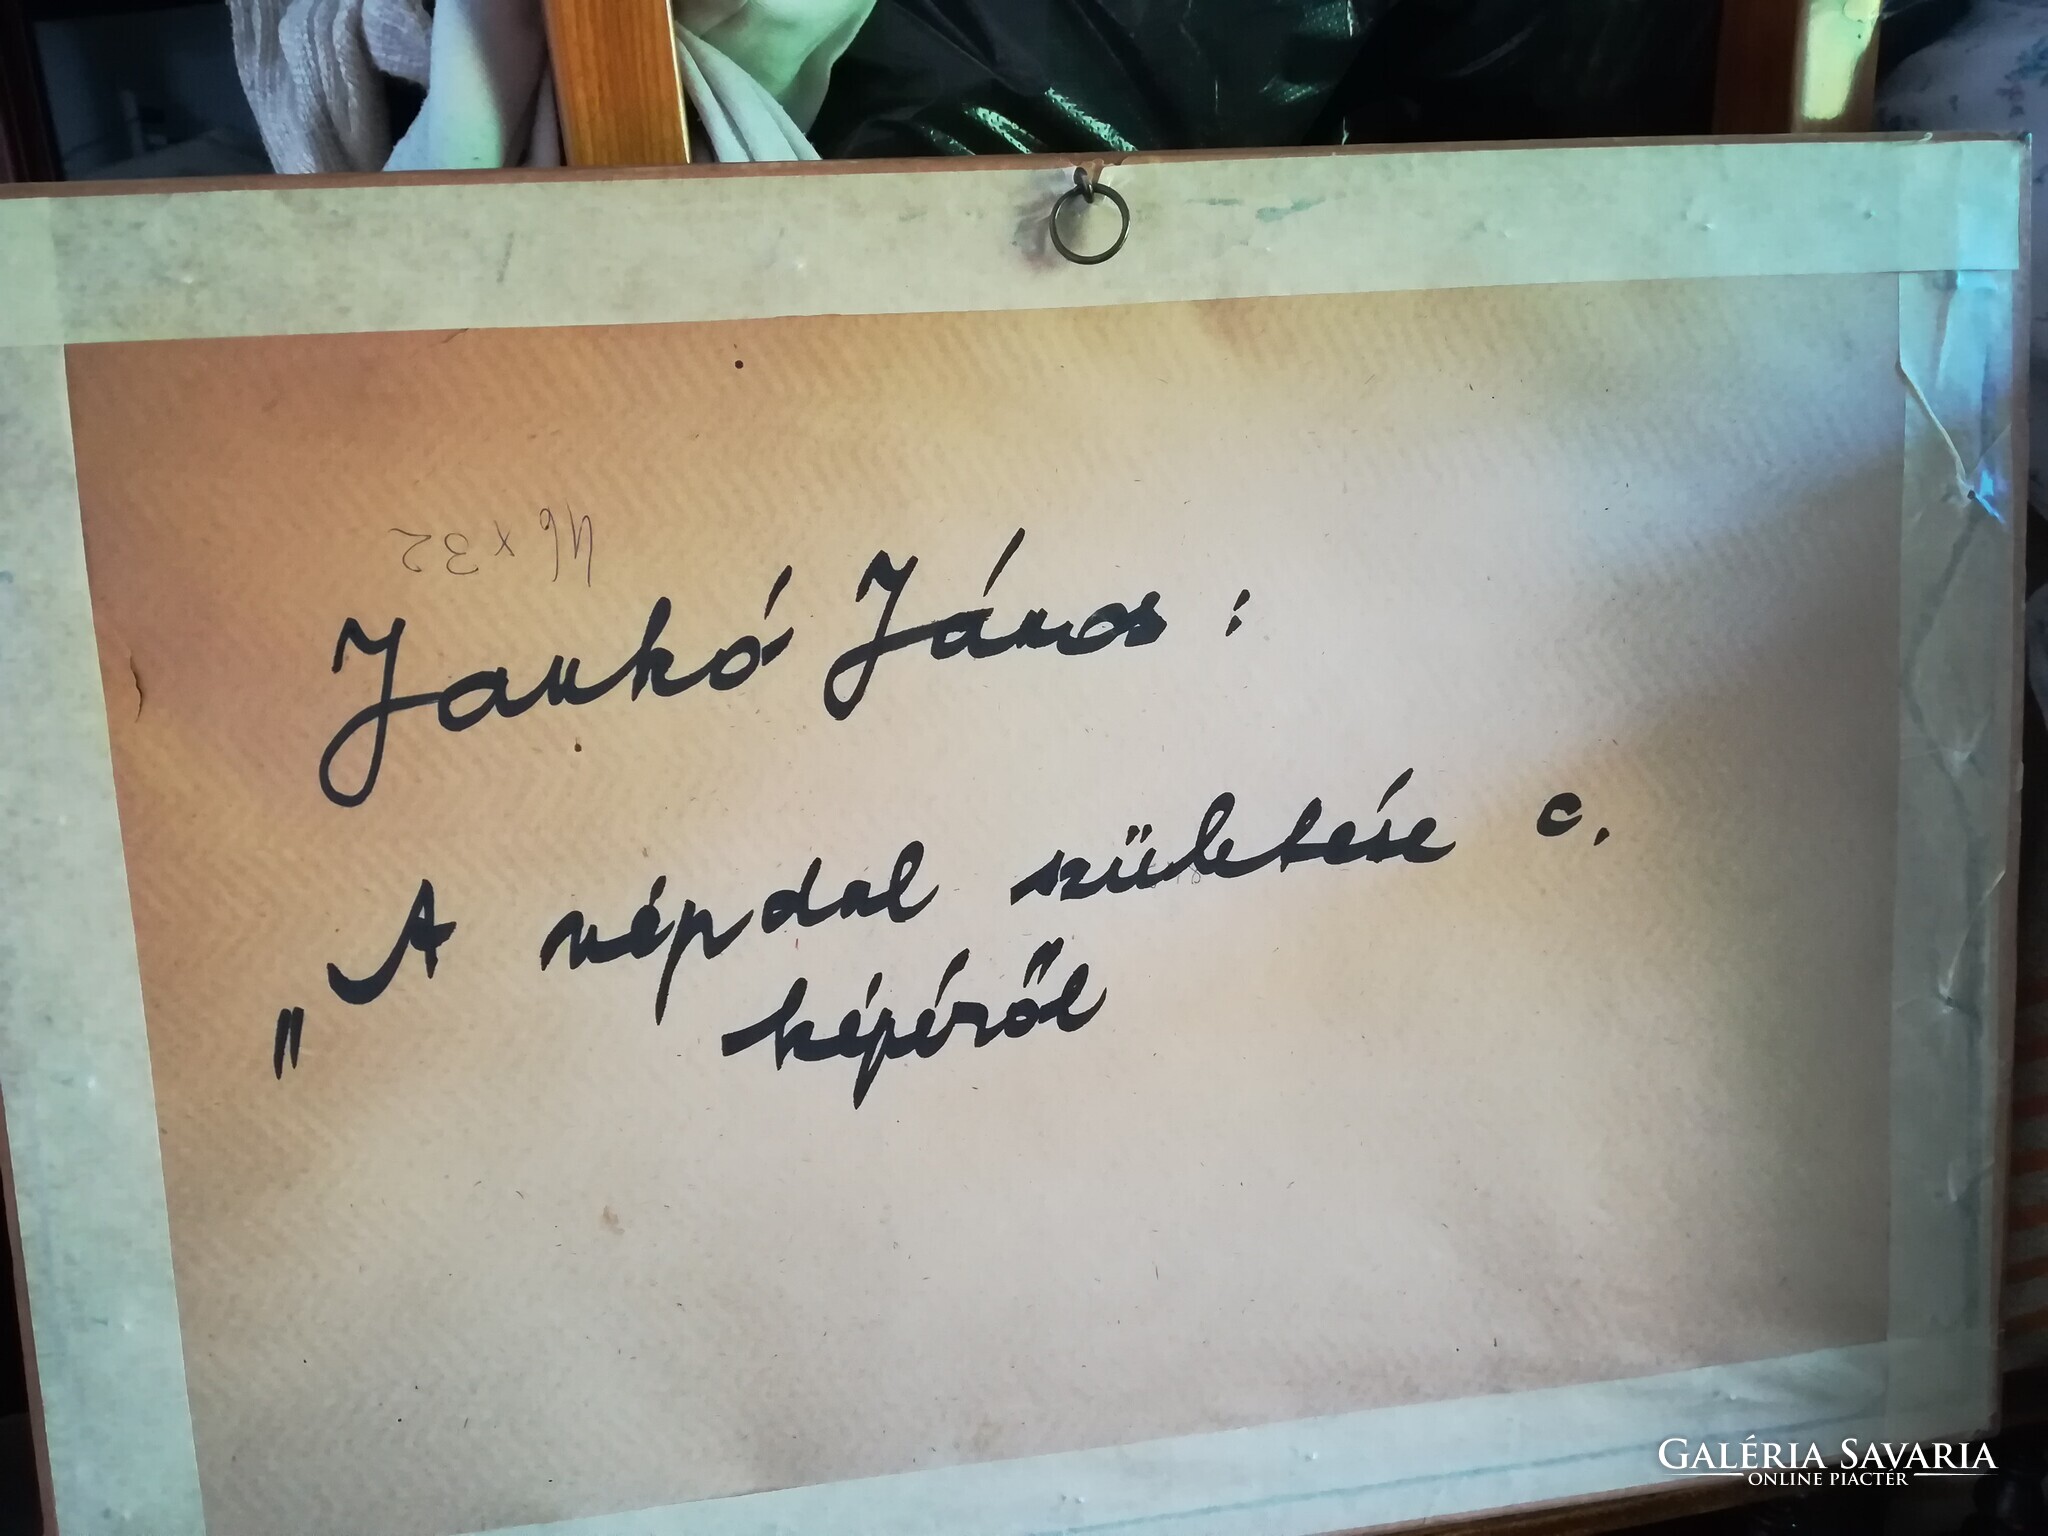 46 x 32
Jankó János :
„A népdal születése c.
képéről
GALÉRIA SAVARIA
ONLINE PIACTÉR